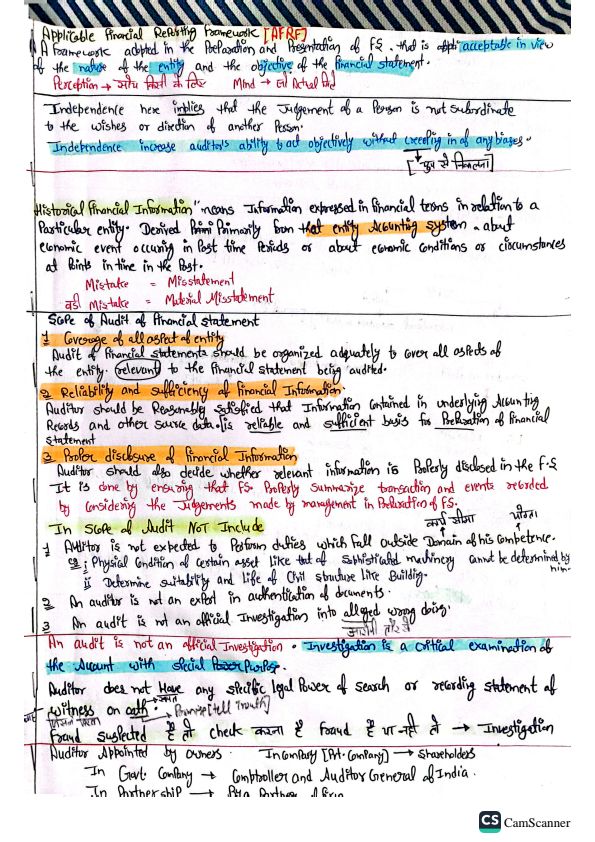 Applicable Financial Reporting Framework [AFRF]
A Framework adopted in the Preparation and Presentation of F.S. that is acceptable in view
of the nature of the entity and the objective of the financial statement.
Perception → सोच किसी के लिए Mind →
Independence here implies that the Judgement of a Person is not subordinate
to the wishes or direction of another Person.
Independence increase auditor's ability to act objectively without creeping in of any biases.
[चुप से निकलना]
Historical Financial Information" means Information expressed in financial terms in relation to a
Particular entity. Derived Primarily from that entity Accounting system. about
economic event occuring in Past time Periods or about economic conditions or circumstances
at Points in time in the Past.
Mistake = Misstatement
बडी Mistake = Material Misstatement
Scope of Audit of Financial Statement
1 Coverage of all aspect of entity
Audit of financial statements should be organized adequately to cover all aspects of
the entity. relevant to the financial statement being audited.
2 Reliability and sufficiency of Financial Information.
Auditor should be Reasonably Satisfied that Information Contained in underlying Accounting
Records and other source data is reliable and sufficient basis for Preparation of financial
statement
3 Proper disclosure of Financial Information
Auditor should also decide whether relevant information is Properly disclosed in the F.S
It is done by ensuring that F.S. Properly Summarize transaction and events recorded
by Considering the Judgements made by management in Preparation of F.S.
कार्य सीमा योग्यता
In Scope of Audit Not Include
1 Auditor is not expected to Perform duties which fall outside Domain of his Competence.
eg i Physical Condition of Certain asset like that of Sophisticated machinery cannot be determined by
him.
ii Determine suitability and life of Civil structure like Building.
2 An auditor is not an expert in authentication of documents.
3 An audit is not an official Investigation into alleged wrong doing.
An audit is not an official Investigation. Investigation is a critical examination of
the Account with special Purpose.
Auditor does not Have any specific legal Power of search or recording statement of
witness on oath. Promise [tell truth]
Fraud suspected है तो check करना है Fraud है या नही तो → Investigation
Auditor Appointed by owners. In Company [Pvt. Company] → Shareholders
In Govt. Company → Comptroller and Auditor General of India.
In Partnership →
CS CamScanner